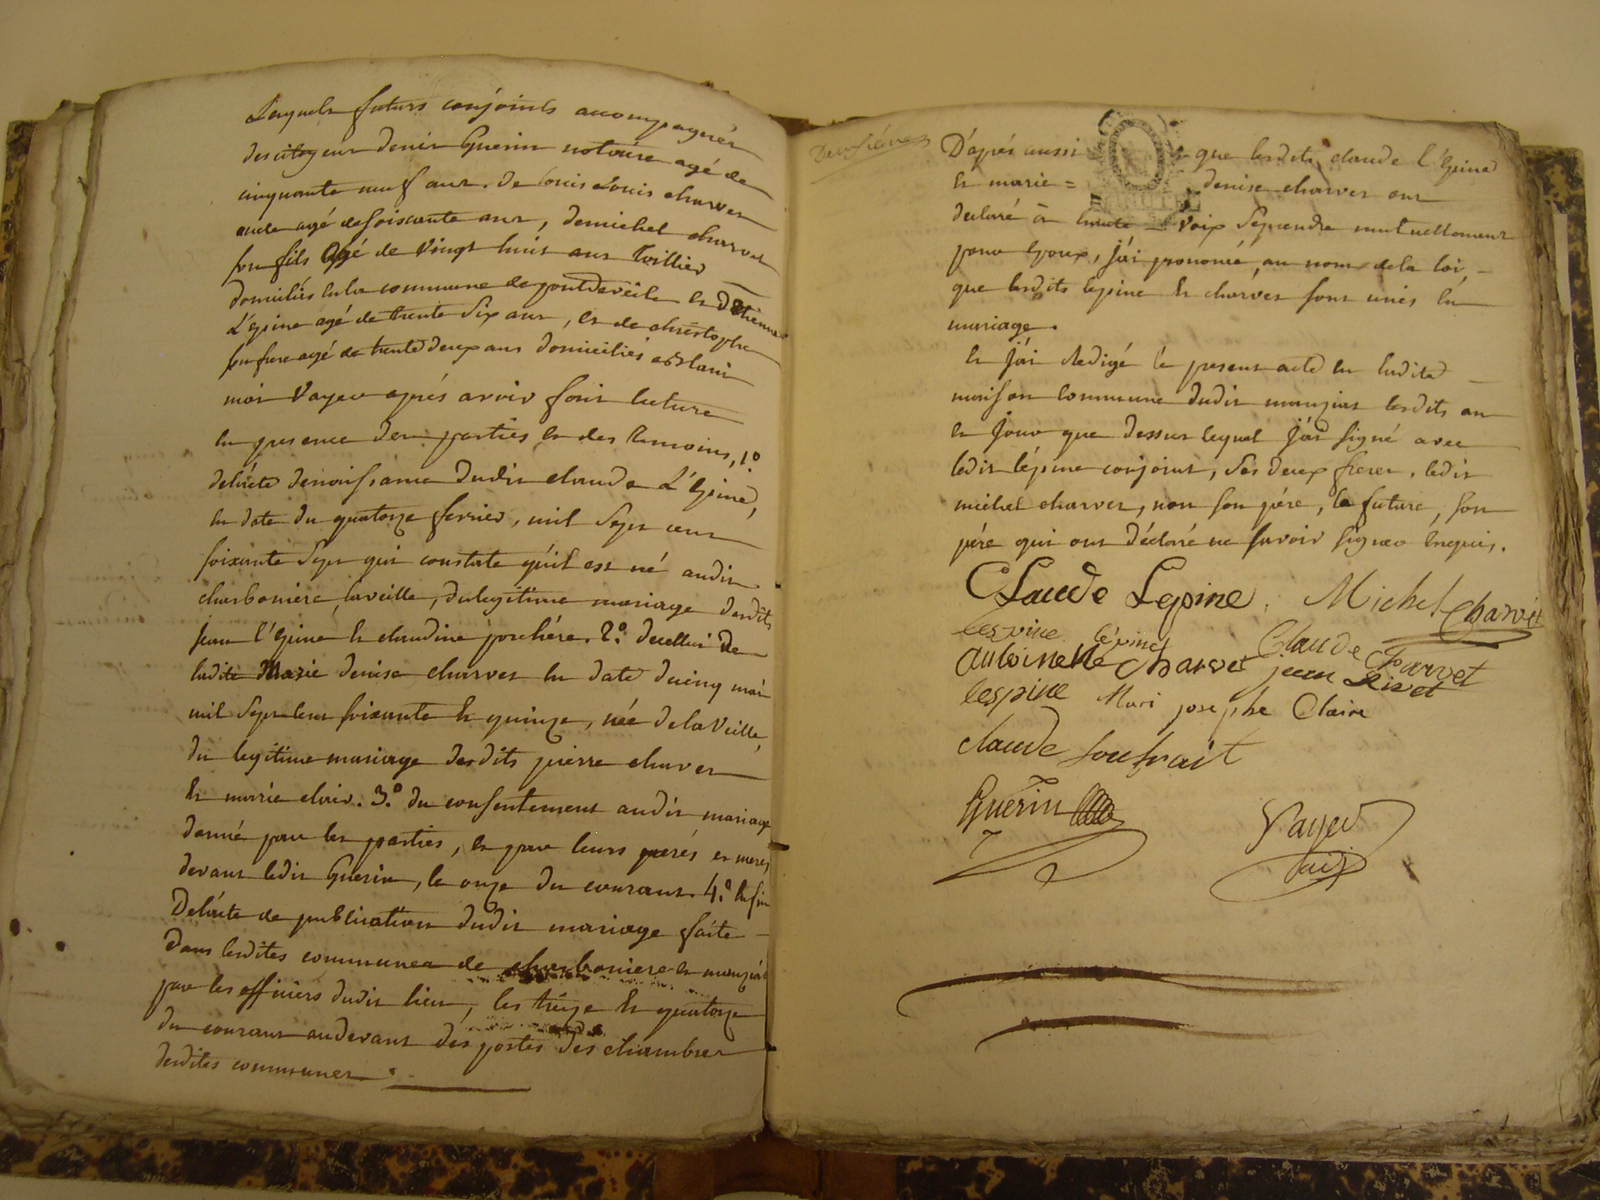 Lesquels futurs conjoints accompagnés
des citoyens denis Guerin notaire agé de
cinquante neuf ans. de Louis Louis charvet
oncle agé de soixante ans, de michel charvet
son fils agé de vingt huit ans
domiciliés en la commune de pontdeveile et detienne
L'epine agé de trente six ans, et de christophe
son frere agé de trente deux ans domiciliés
moi Vayeu aprés avoir fait lecture
en presence des parties et des temoins, 1.º
de l'acte de naissance dudit claude L'Epine,
en date du quatorze fevrier, mil sept cent
soixante sept qui constate qu'il est né audit
charboniere, la veille, du legitime mariage desdits
jean l'epine et claudine porchére. 2.º de celui de
ladite Marie denise charvet en date du cinq mai
mil sept cent soixante et quinze, née de la veille,
du legitime mariage desdits pierre charvet
et marie clair. 3.º du consentement audit mariage
donné par les parties, et par leurs perés et meres,
devant ledit Guerin, le onze du courant. 4.º enfin
De l'acte de publication dudit mariage faite
Dans lesdites communes de charboniere et manziat
par les officiers dudit lieu, les treize et quatorze
du courant audevant des portes des chambres
desdites communes.
D'aprés aussi que lesdits claude l'Epine
et marie = denise charvet ont
declaré à haute voix se prendre mutuellement
pour epoux, j'ai prononcé, au nom de la loi,
que lesdits lepine et charvet sont unis en
mariage.
et j'ai redigé le present acte en ladite
maison commune dudit manziat lesdits an
et jour que dessus lequel j'ai signé avec
ledit lépine conjoint, ses deux freres, ledit
michel charvet, non son pére, la future, son
pére qui ont déclaré ne savoir signer enquis.
Claude Lepine. Michel Charvet
lespine lépine Claude Charvet
antoinette Charvet jean Rivet
lespine Mari josephe Claire
claude soufrait
Guerin Vayeu